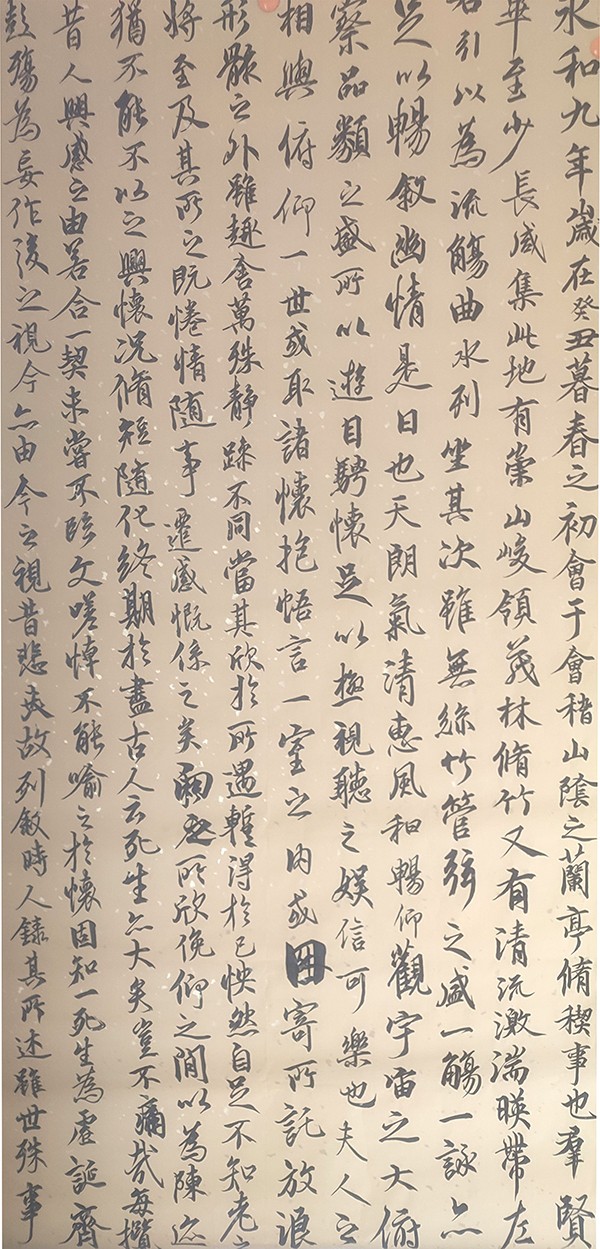 永和九年歲在癸丑暮春之初會于會稽山陰之蘭亭脩稧事也羣賢
畢至少長咸集此地有崇山峻領茂林脩竹又有清流激湍暎帶左
右引以為流觴曲水列坐其次雖無絲竹管弦之盛一觴一詠亦
足以暢敘幽情是日也天朗氣清惠風和暢仰觀宇宙之大俯
察品類之盛所以遊目騁懷足以極視聽之娛信可樂也夫人之
相與俯仰一世或取諸懷抱悟言一室之內或因寄所託放浪
形骸之外雖趣舍萬殊靜躁不同當其欣於所遇暫得於己怏然自足不知老之
將至及其所之既惓情隨事遷感慨係之矣向之所欣俛仰之間以為陳迹
猶不能不以之興懷況脩短隨化終期於盡古人云死生亦大矣豈不痛哉每攬
昔人興感之由若合一契未嘗不臨文嗟悼不能喻之於懷固知一死生為虛誕齊
彭殤為妄作後之視今亦由今之視昔悲夫故列敘時人錄其所述雖世殊事